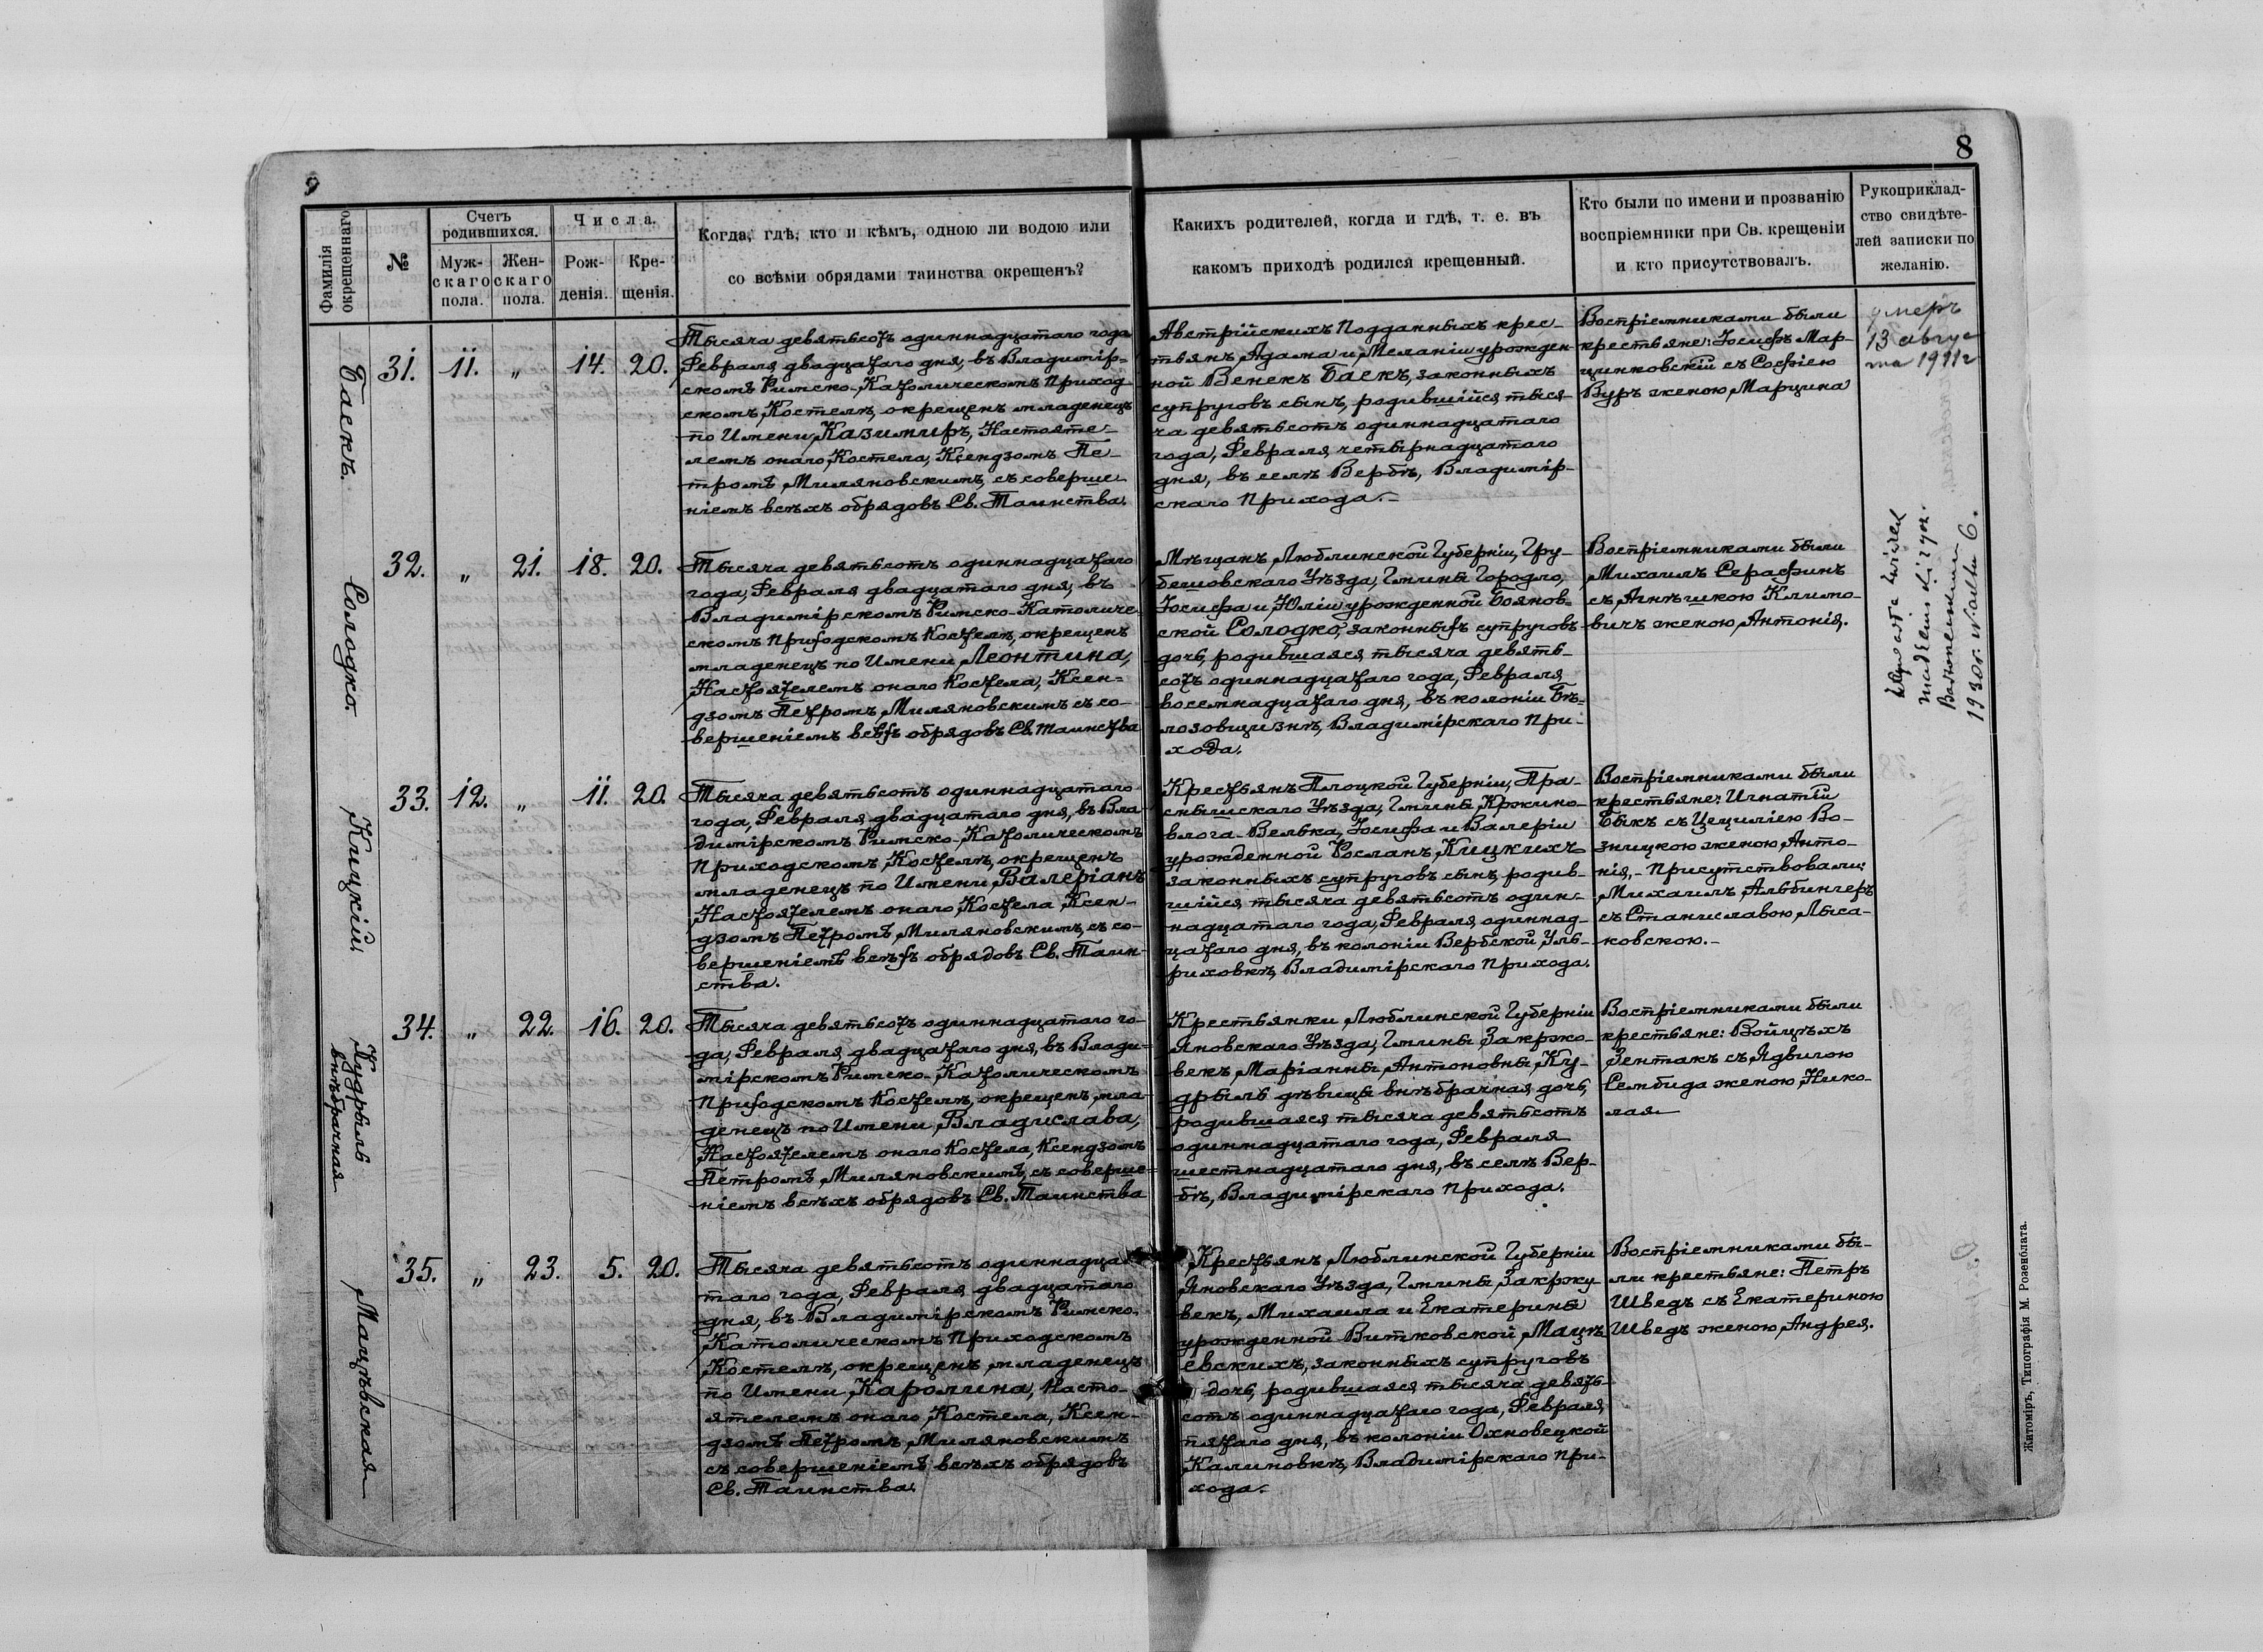 9
8
Фамилія
окрещеннаго
№
Счетъ
родившихся.
Муж-
скаго
пола.
Жен-
скаго
пола.
Числа.
Рож-
денія.
Кре-
щенія.
Когда, гдѣ, кто и кѣмъ, одною ли водою или
со всѣми обрядами таинства окрещенъ?
Какихъ родителей, когда и гдѣ, т. е. въ
какомъ приходѣ родился крещенный.
Кто были по имени и прозванію
воспріемники при Св. крещеніи
и кто присутствовалъ.
Рукоприклад-
ство свидѣте-
лей записки по
желанію.
Баскъ.
31. 11. „ 14. 20.
Тысяча девятьсотъ одиннадцатаго года
Февраля двадцатаго дня, въ Владимір-
скомъ Римско-Католическомъ приход-
скомъ Костелѣ, окрещенъ младенецъ
по Имени Казимиръ, Настояте-
лемъ онаго Костела, Ксендзомъ Пе-
тромъ Миляновскимъ, съ соверше-
ніемъ всѣхъ обрядовъ Св. Таинства.
Австрійскихъ Подданныхъ крес-
тьянъ, Адама и Меланіи урожден-
ной Венекъ Баскъ, законныхъ
супруговъ сынъ, родившійся тыся-
ча девятьсотъ одиннадцатаго
года, Февраля четырнадцатаго
дня, въ селѣ Вербѣ, Владимір-
скаго прихода.-
Воспріемниками были
крестьяне: Іосифъ Мар-
цинковскій съ Софіею
Вуръ женою Марцина
умеръ
13 авгус
та 1911 г
Солодко.
32. „ 21. 18. 20.
Тысяча девятьсотъ одиннадцатаго
года, Февраля двадцатаго дня, въ
Владимірскомъ Римско-Католиче-
скомъ приходскомъ Костелѣ, окрещенъ
младенецъ по Имени Леонтина,
Настоятелемъ онаго Костела, Ксен-
дзомъ Петромъ Миляновскимъ съ со-
вершеніемъ всѣхъ обрядовъ Св. таинства
Мѣщанъ Люблинской Губерніи, Гру-
бешовскаго Уѣзда, Гмины Городло,
Іосифа и Юліи урожденной Боянов-
ской Солодко, законныхъ супруговъ
дочь, родившаяся тысяча девять-
сотъ одиннадцатаго года, Февраля
восемнадцатаго дня, въ колоніи Бѣ-
лозовщизнѣ, Владимірскаго при-
хода.
Воспріемниками были
Михаилъ Серафинъ
съ Агнѣшкою Климо-
вичъ женою Антонія.
1930 r.
Кицкій
33. 12. „ 11. 20.
Тысяча девятьсотъ одиннадцатаго
года, Февраля двадцатаго дня, въ Вла-
димірскомъ Римско-Католическомъ
приходскомъ Костелѣ, окрещенъ
младенецъ по Имени Валеріанъ
Настоятелемъ онаго Костела Ксен-
дзомъ Петромъ Миляновскимъ, съ со-
вершеніемъ всѣхъ обрядовъ Св. Таин-
ства.
Крестьянъ Плоцкой Губерніи, Пра-
снышскаго Уѣзда, Гмины Кржино-
влога-Велька, Іосифа и Валеріи
урожденной Росланъ, Кицкихъ
законныхъ супруговъ сынъ, родив-
шійся тысяча девятьсотъ один-
надцатаго года, Февраля одиннад-
цатаго дня, въ колоніи Вербской Уль-
риховкѣ, Владимірскаго прихода.
Воспріемниками были
крестьяне: Игнатій
Быкъ съ Цециліею Во-
зницкою женою Анто-
нія,- присутствовали:
Михаилъ Альбингеръ
съ Станиславою Лыса-
ковскою.-
Кудрыль
внѣбрачная
34. „ 22. 16. 20.
Тысяча девятьсотъ одиннадцатаго го-
да, Февраля двадцатаго дня, въ Влади-
мірскомъ Римско-Католическомъ
приходскомъ Костелѣ, окрещенъ мла-
денецъ по Имени Владислава,
Настоятелемъ онаго Костела, Ксендзомъ
Петромъ Миляновскимъ, съ соверше-
ніемъ всѣхъ обрядовъ Св. Таинства
Крестьянки Люблинской Губерніи
Яновскаго Уѣзда, Гмины Закржо-
векъ, Маріанны Антоновны Ку-
дрыль дѣвицы внѣбрачная дочь,
родившаяся тысяча девятьсотъ
одиннадцатаго года, Февраля
шестнадцатаго дня, въ селѣ Вер-
бѣ, Владимірскаго прихода.
Воспріемниками были
крестьяне: Войцѣхъ
Зентакъ съ Ядвигою
Сембида женою Нико-
лая
Мацѣевская
35. „ 23. 5. 20.
Тысяча девятьсотъ одиннадца-
таго года, Февраля двадцатаго
дня, въ Владимірскомъ Римско-
Католическомъ приходскомъ
Костелѣ, окрещенъ младенецъ
по Имени Каролина, Насто-
ятелемъ онаго Костела, Ксен-
дзомъ Петромъ Миляновскимъ
съ совершеніемъ всѣхъ обрядовъ
Св. Таинства.
Крестьянъ Люблинской Губерніи
Яновскаго Уѣзда, Гмины Закржу-
векъ, Михаила и Екатерины
урожденной Витковской Мацѣ-
евскихъ, законныхъ супруговъ
дочь, родившаяся тысяча девять-
сотъ одиннадцатаго года, Февраля
пятаго дня, въ колоніи Охновецкой
Калиновкѣ, Владимірскаго при-
хода.
Воспріемниками бы-
ли крестьяне: Петръ
Шведъ съ Екатериною
Шведъ женою Андрея.
Житоміръ, Типографія М. Розенблата.